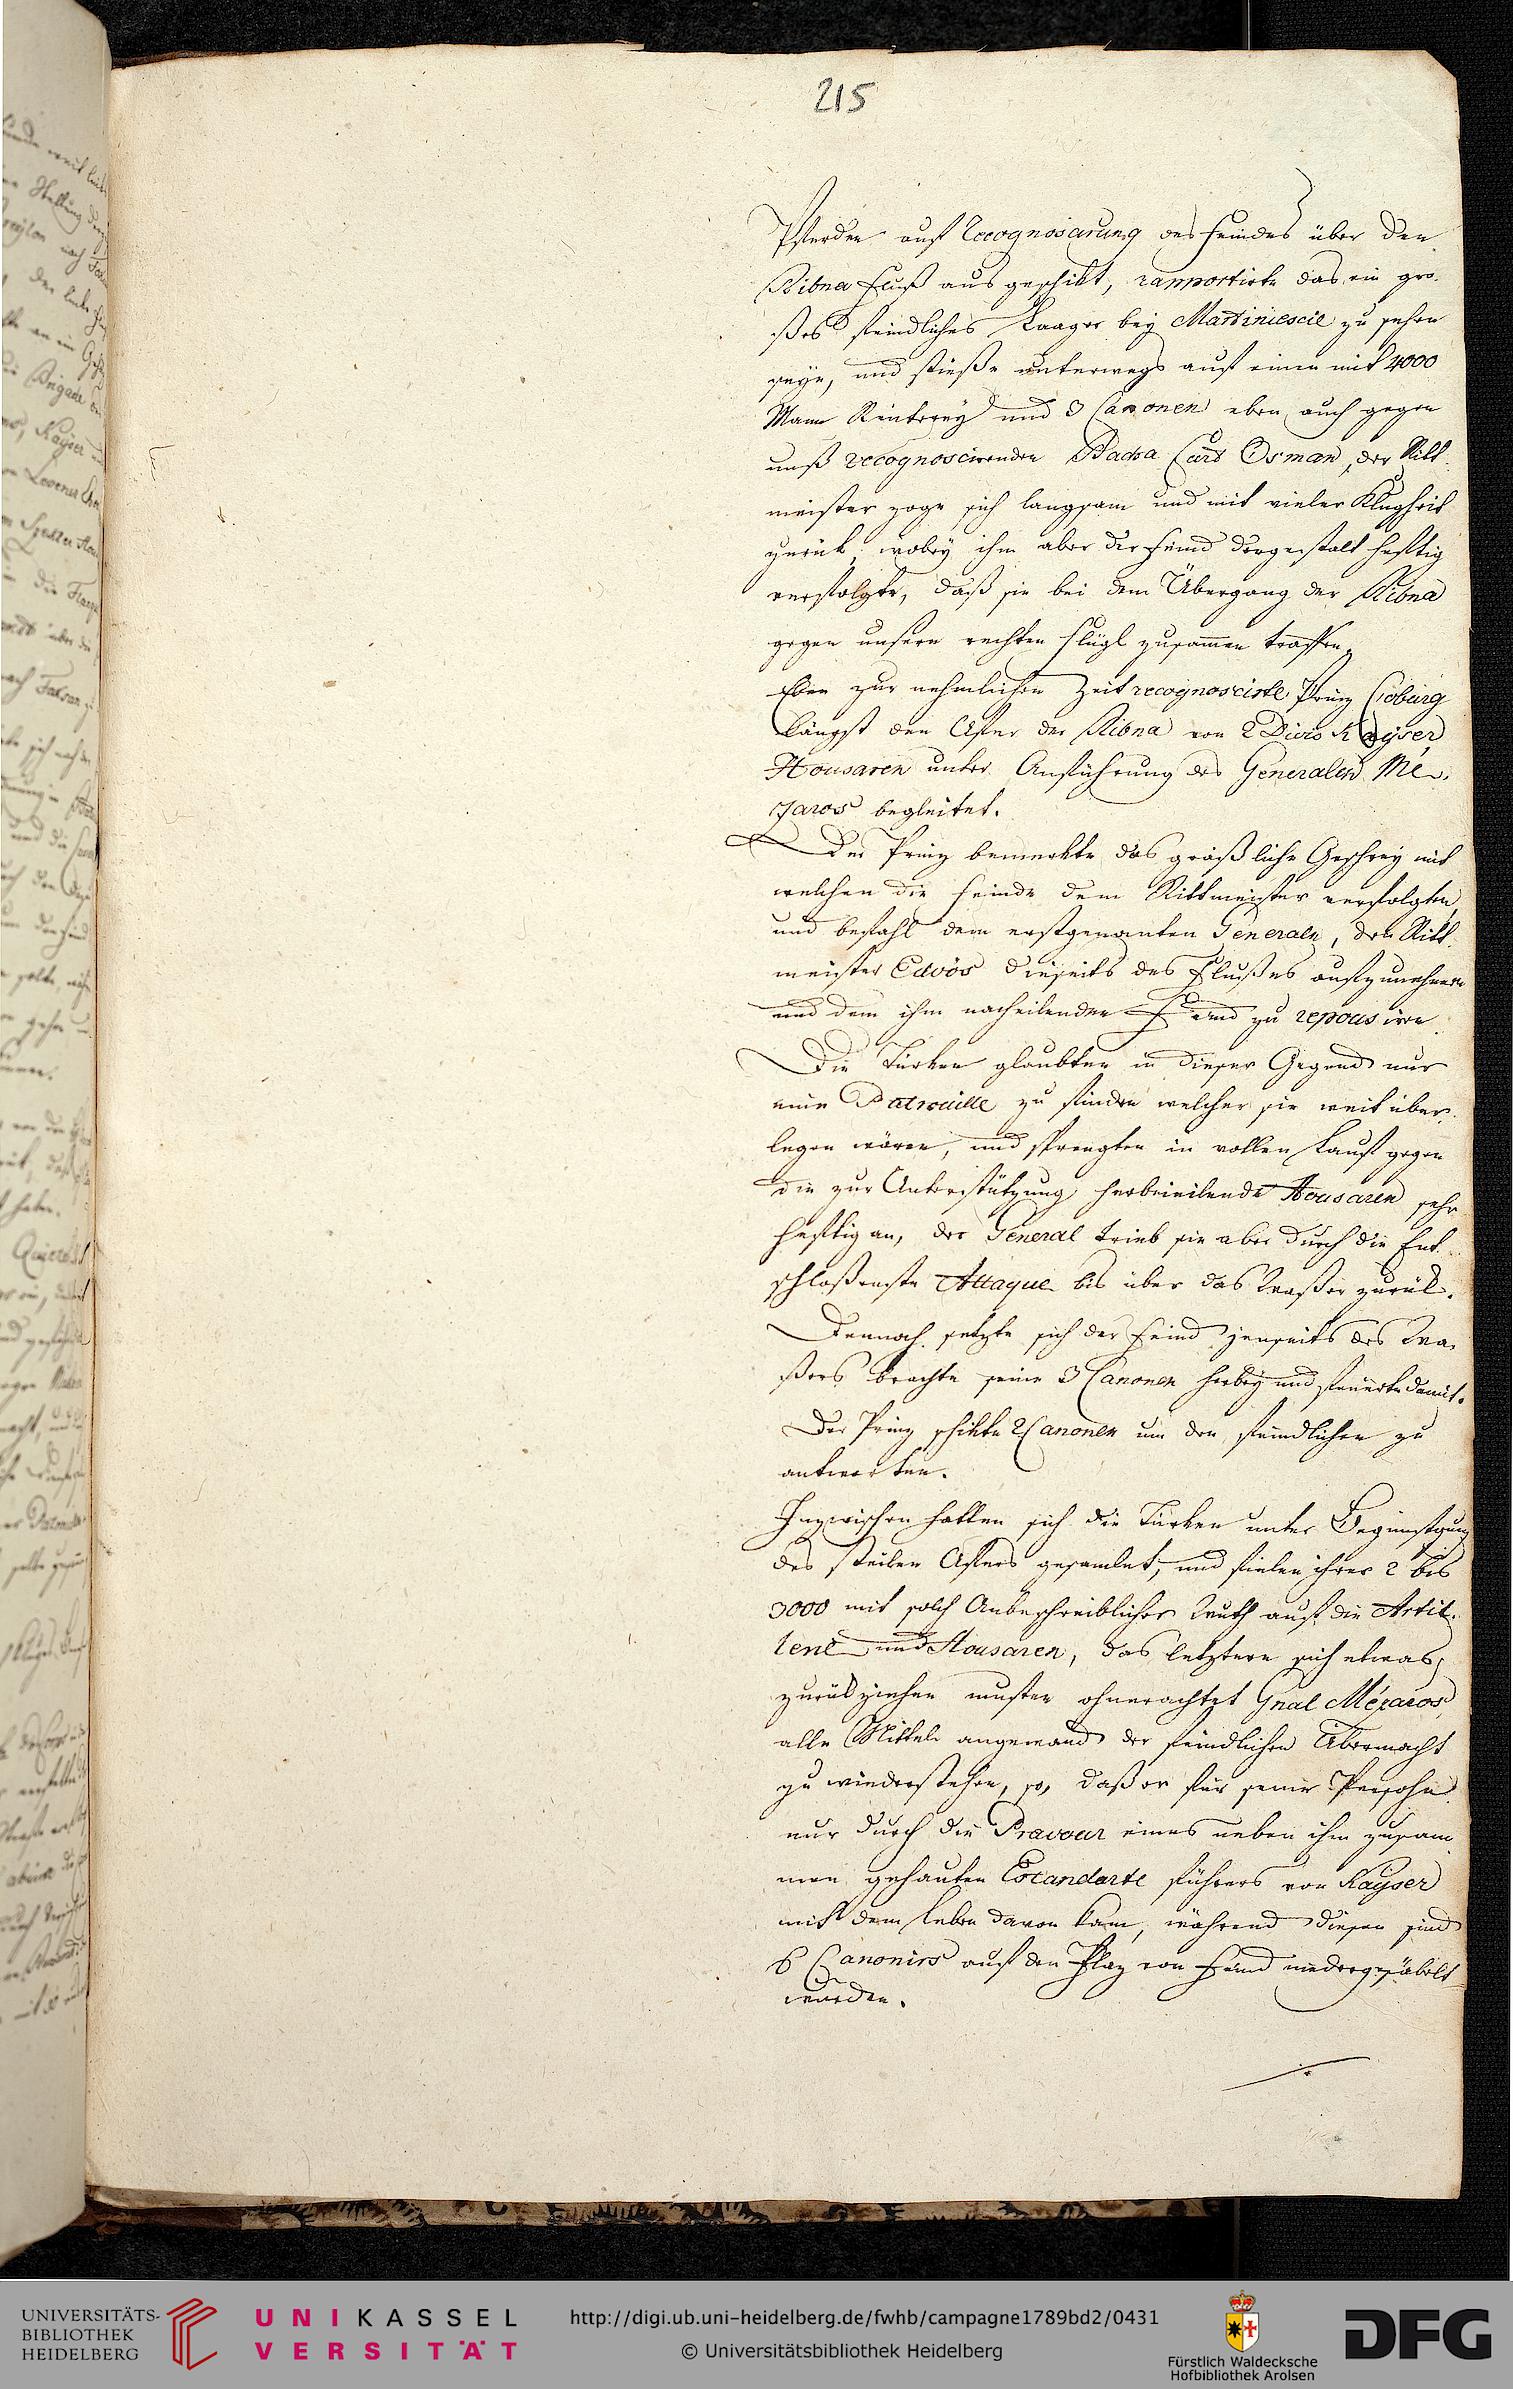 215
Pferden auf Recognoscirung des Feindes über den
Ribna Fluß ausgeschikt, rapportirte das ein gro-
ßes feindliches Laager bey Martiniescie zu sehen
seye, und stieße unterwegs auf einen mit 4000
Mann Reuterey und 3 Canonen eben auch gegen
unß recognoscirenden Bacha Card Osman, der Ritt-
meister zoge sich langsam und mit vieler Klugheit
zurük, wobey ihn aber der Feind dergestalt heftig
verfolgte, daß sie bei dem Übergang der Ribna
gegen unsern rechten Flügl zusamen traffen.
Eben zur nehmlichen Zeit recognoscirte Prinz Coburg
längst den Ufer der Ribna von 2 Divis Kayser
Housaren unter Anführung des Generalen Mé-
zaros begleitet.
Der Prinz bemerkte das gräßliche Geschrey mit
welchen die Feinde dem Rittmeister verfolgten,
und befahl dem erstgenanten Generaln, den Ritt-
meister Edvös dießeits des Flußes aufzunehmen
und dem ihm nacheilenden Feind zu repousiren
Die Türken glaubten in dieser Gegend nur
eine Patrouille zu finden welcher sie weit über-
legen wären, und sprengten in vollen Lauf gegen
die zur Unterstützung herbeieilende Housaren sehr
heftig an, der General trieb sie aber durch die Ent-
schloßenste Attaque bis über das Waßer zurük.
Dennoch setzte sich der Feind jenseits des Wa-
ßers brachte seine 3 Canonen herbey und feuerte damit.
Der Prinz schikte 2 Canonen um den feindlichen zu
antworten.
Inzwischen hatten sich die Türken unter Begünstigung
des steilen Ufers gesamlet, und fielen ihrer 2 bis
3000 mit solch Unbeschreiblicher Wuth auf die Artil-
lerie und Housaren, das letztere sich etwas
zurükziehen musten ohnerachtet Gnal Mézaros
alle Mitteln angewand der feindlichen Übermacht
zu wiederstehen, so, daß er für seine Persohn
nur durch die Bravour eines neben ihm zusam-
men gehauten Estandarte führers von Kayser
mit dem Leben davon kam, während diesen sind
6 Canonirs auf den Plaz von Feind niedergesäbelt
worden.
UNIVERSITÄTS-
BIBLIOTHEK
HEIDELBERG
UNIKASSEL
VERSITÄT
http://digi.ub.uni-heidelberg.de/fwhb/campagne1789bd2/0431
© Universitätsbibliothek Heidelberg
Fürstlich Waldecksche
Hofbibliothek Arolsen
DFG